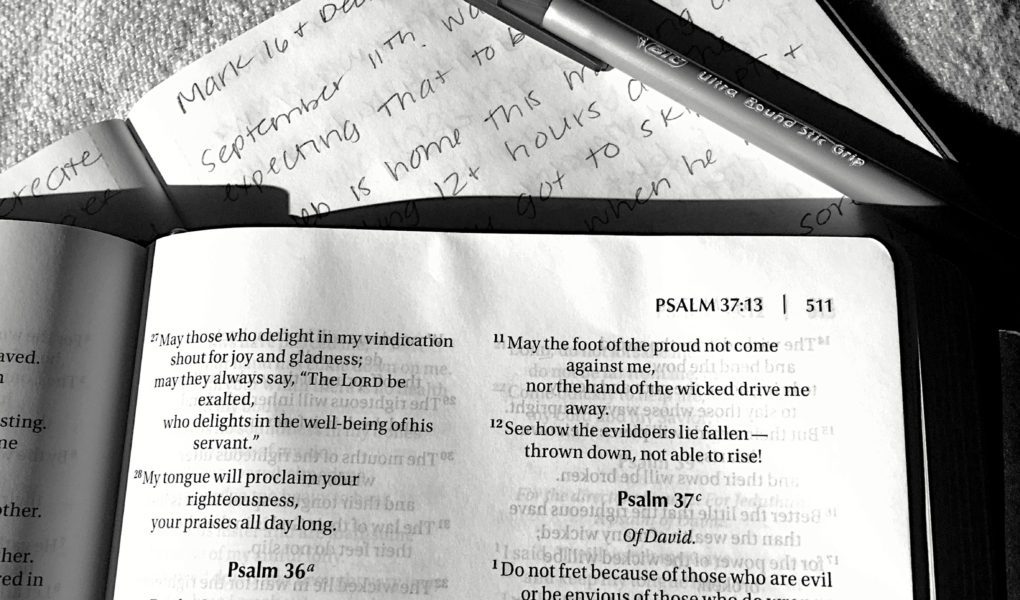 Mark 16 +
September 11th.
expecting that to b
is home this
12+ hours
got to sk
when he
sor
create
BIC Ultra Round Stic Grip
PSALM 37:13 | 511
27 May those who delight in my vindication
shout for joy and gladness;
may they always say, “The LORD be
exalted,
who delights in the well-being of his
servant.”
28 My tongue will proclaim your
righteousness,
your praises all day long.
Psalm 36a
11 May the foot of the proud not come
against me,
nor the hand of the wicked drive me
away.
12 See how the evildoers lie fallen—
thrown down, not able to rise!
Psalm 37c
Of David.
1 Do not fret because of those who are evil
or be envious of those who do
aved.
sting.
ne
other.
her.
ed in